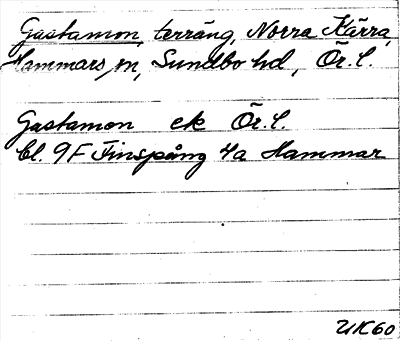 Gastamon, terräng, Norra Kärra,
Hammars sn, Sundbo hd, Ör. l.
Gastamon ek Ör. l.
bl. 9F Finspång 4a Hammar
UK60